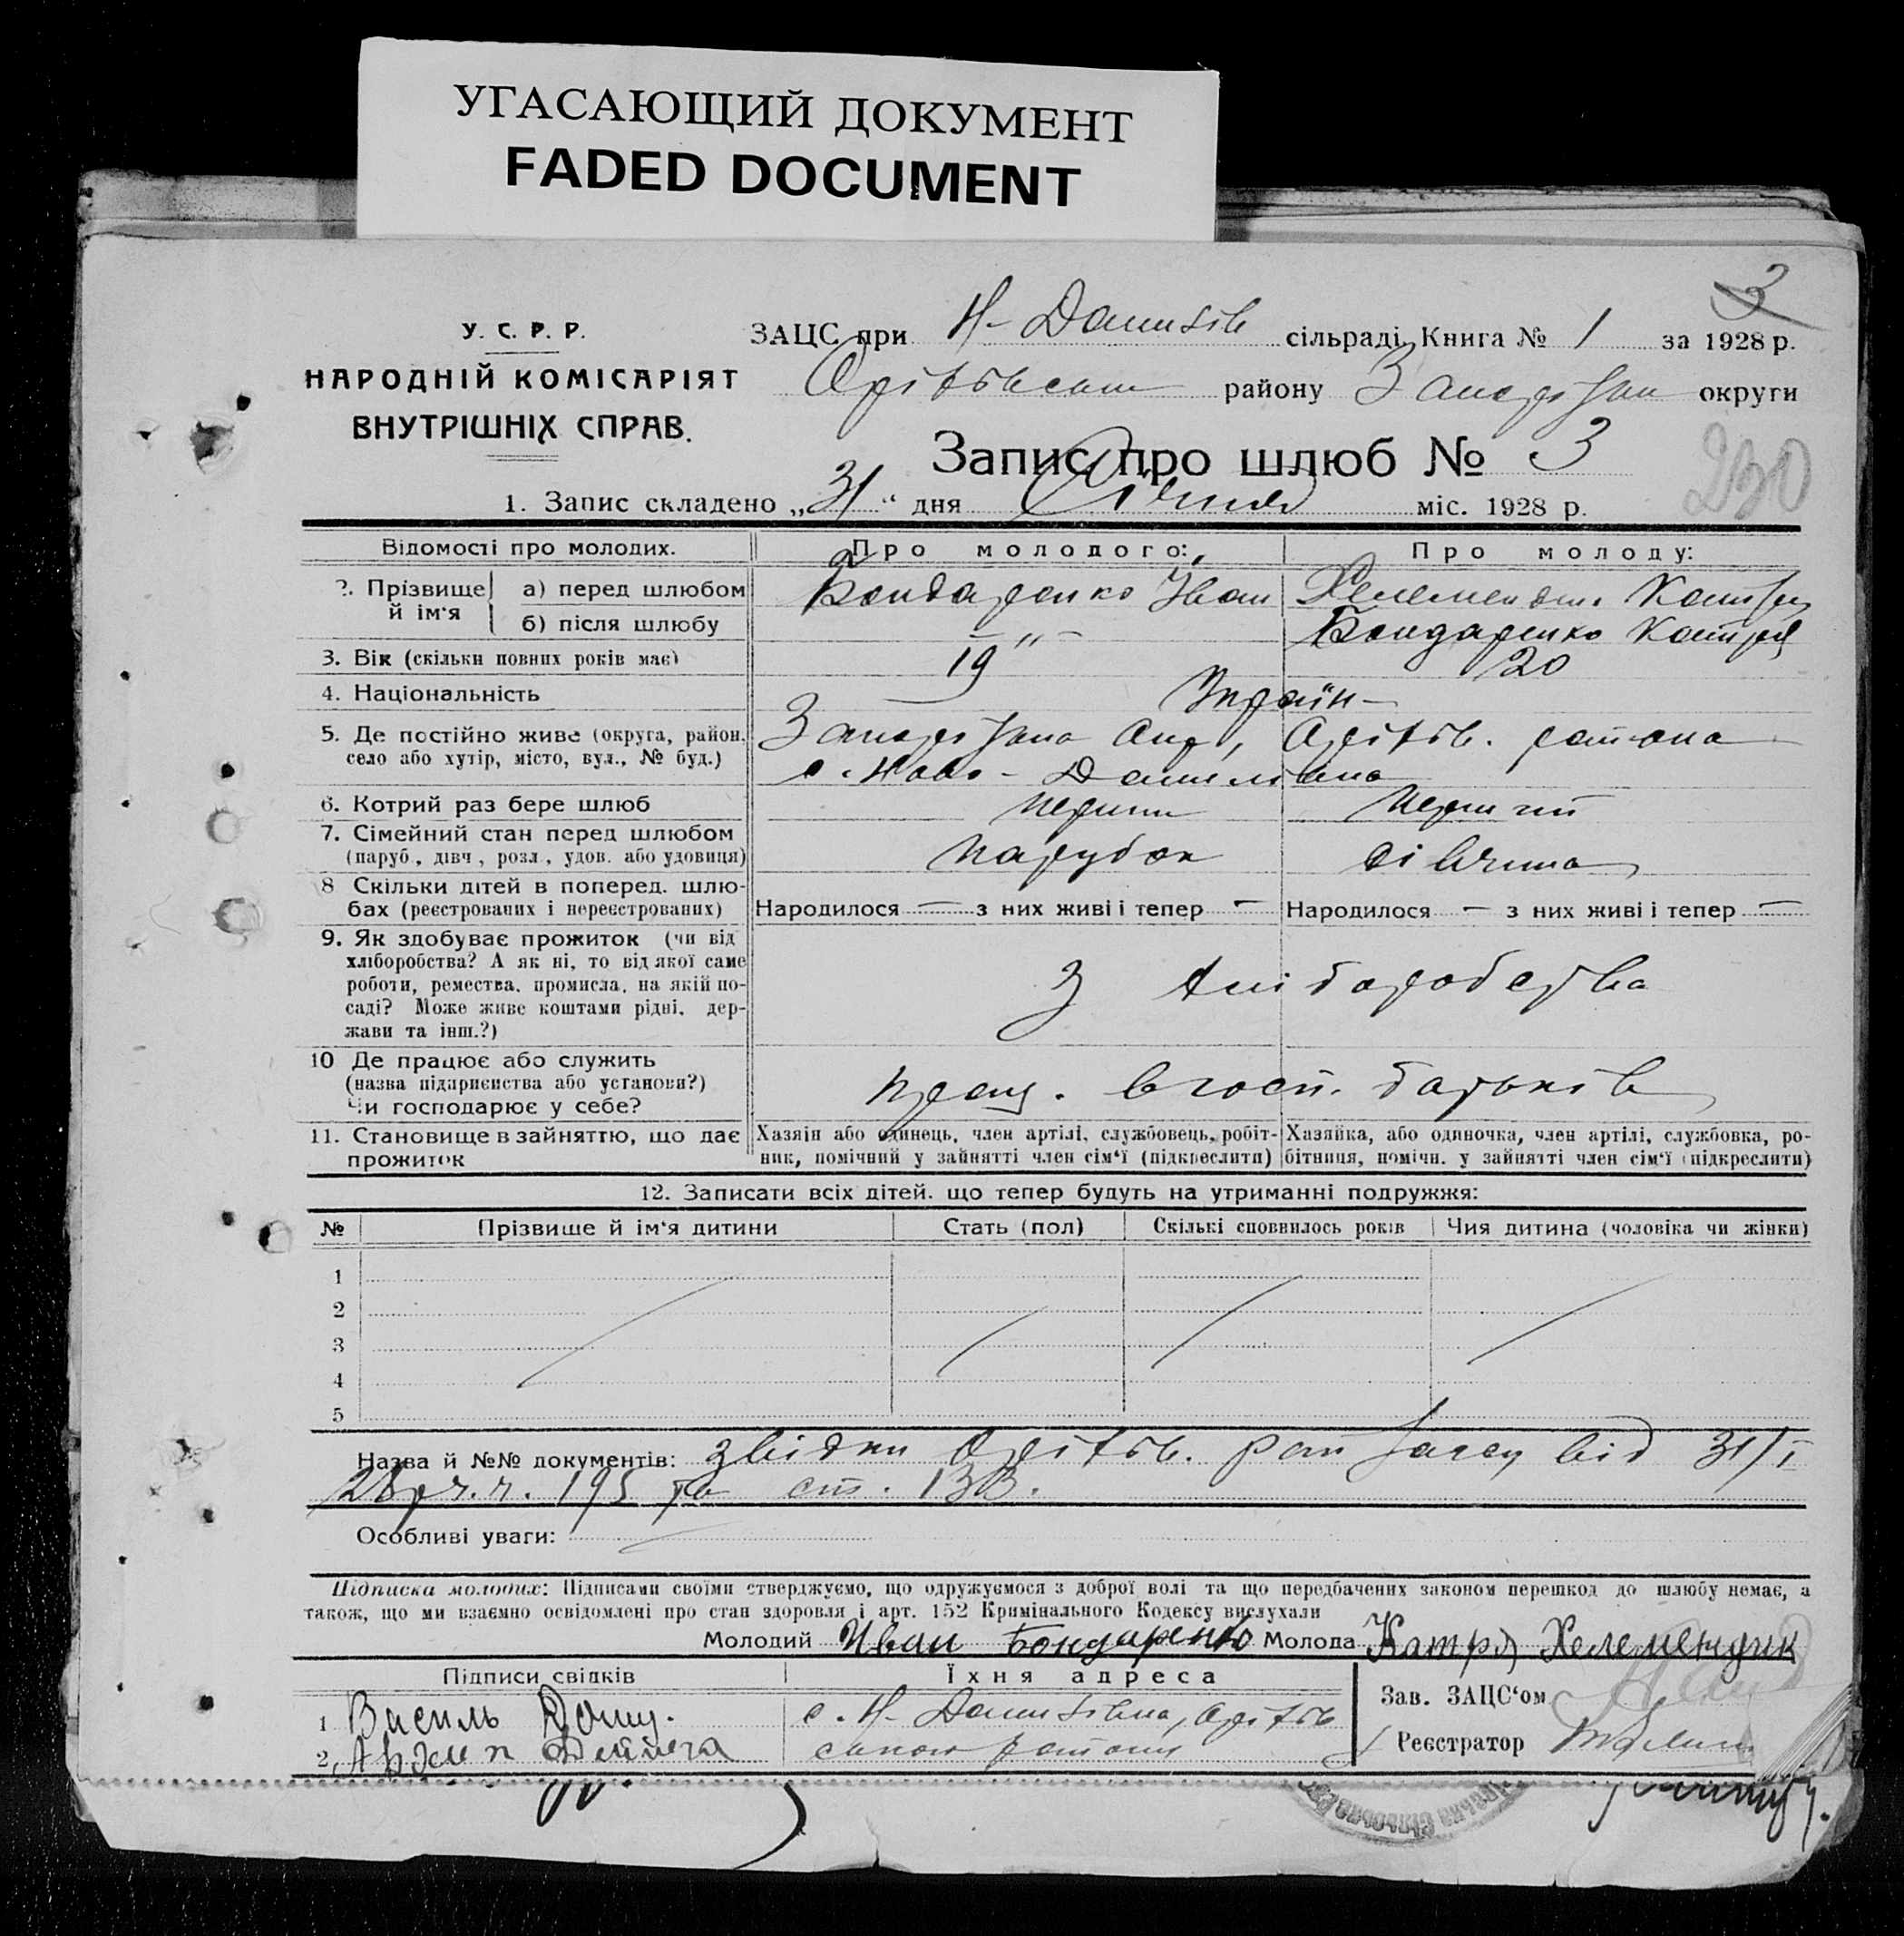 УГАСАЮЩИЙ ДОКУМЕНТ
FADED DOCUMENT
3
У. С. Р. Р.
НАРОДНІЙ КОМІСАРІЯТ
ВНУТРІШНІХ СПРАВ.
ЗАЦС при Н- Данилів сільраді Книга № 1 за 1928 р.
району округи
Запис про шлюб № 3
230
1. Запис складено „31“ дня Січня міс. 1928 р.
Відомості про молодих. Про молодого: Про молоду:
2. Прізвище й ім‘я а) перед шлюбом Бондаренко Іван Хелемендик Катря
б) після шлюбу — " — Бондаренко Катря
3. Вік (скільки повних років має) 19 20
4. Національність Україн-
5. Де постійно живе (округа, район, Оріхів. района
село або хутір, місто, вул., № буд.) с. Ново-Данилівка
6. Котрий раз бере шлюб перший перший
7. Сімейний стан перед шлюбом парубок дівчина
(паруб., дівч., розл., удов. або удовиця)
8 Скільки дітей в поперед. шлю-
бах (реєстрованих і нереєстрованих) Народилося — з них живі і тепер — Народилося — з них живі і тепер —
9. Як здобуває прожиток (чи від
хліборобства? А як ні, то від якої саме
роботи, ремества, промисла, на якій по-
саді? Може живе коштами рідні, дер-
жави та інш.?) З хліборобства
10 Де працює або служить
(назва підприємства або установи?) прац. в госп. батьків
Чи господарює у себе?
11. Становище в зайняттю, що дає Хазяїн або одинець, член артілі, службовець, робіт- Хазяйка, або одиночка, член артілі, службовка, ро-
прожиток ник, помічний у зайнятті член сім‘ї (підкреслити) бітниця, помічн. у зайнятті член сім‘ї (підкреслити)
12. Записати всіх дітей, що тепер будуть на утриманні подружжя:
№ Прізвище й ім‘я дитини Стать (пол) Скількі сповнилось років Чия дитина (чоловіка чи жінки)
1
2
3
4
5
Назва й №№ документів: звідки Оріхів. від 31/I
28 р. ч. 195 та ст. 133.
Особливі уваги:
Підписка молодих: Підписами своїми стверджуємо, що одружуємося з доброї волі та що передбачених законом перешкод до шлюбу немає, а
також, що ми взаємно освідомлені про стан здоровля і арт. 152 Кримінального Кодексу вислухали
Молодий Иван Бондаренко Молода Катря Хелемендик
Підписи свідків Їхня адреса
Зав. ЗАЦС‘ом
1 Василь с. Н- Данилівка, Оріхів
2. района
Реєстратор